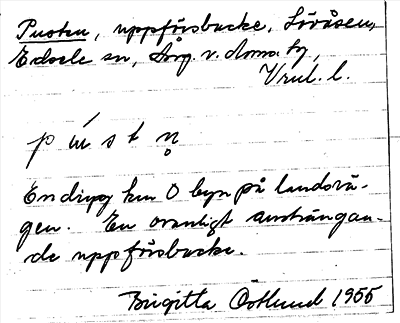 Pusten, uppförsbacke, Lövåsen,
Edsele sn, Ång. v. dom. by,
l.
p ú s t n̥
En dryg km O byn på landsvä-
gen. En ovanligt ansträngan-
de uppförsbacke.
Birgitta Östlund 1955